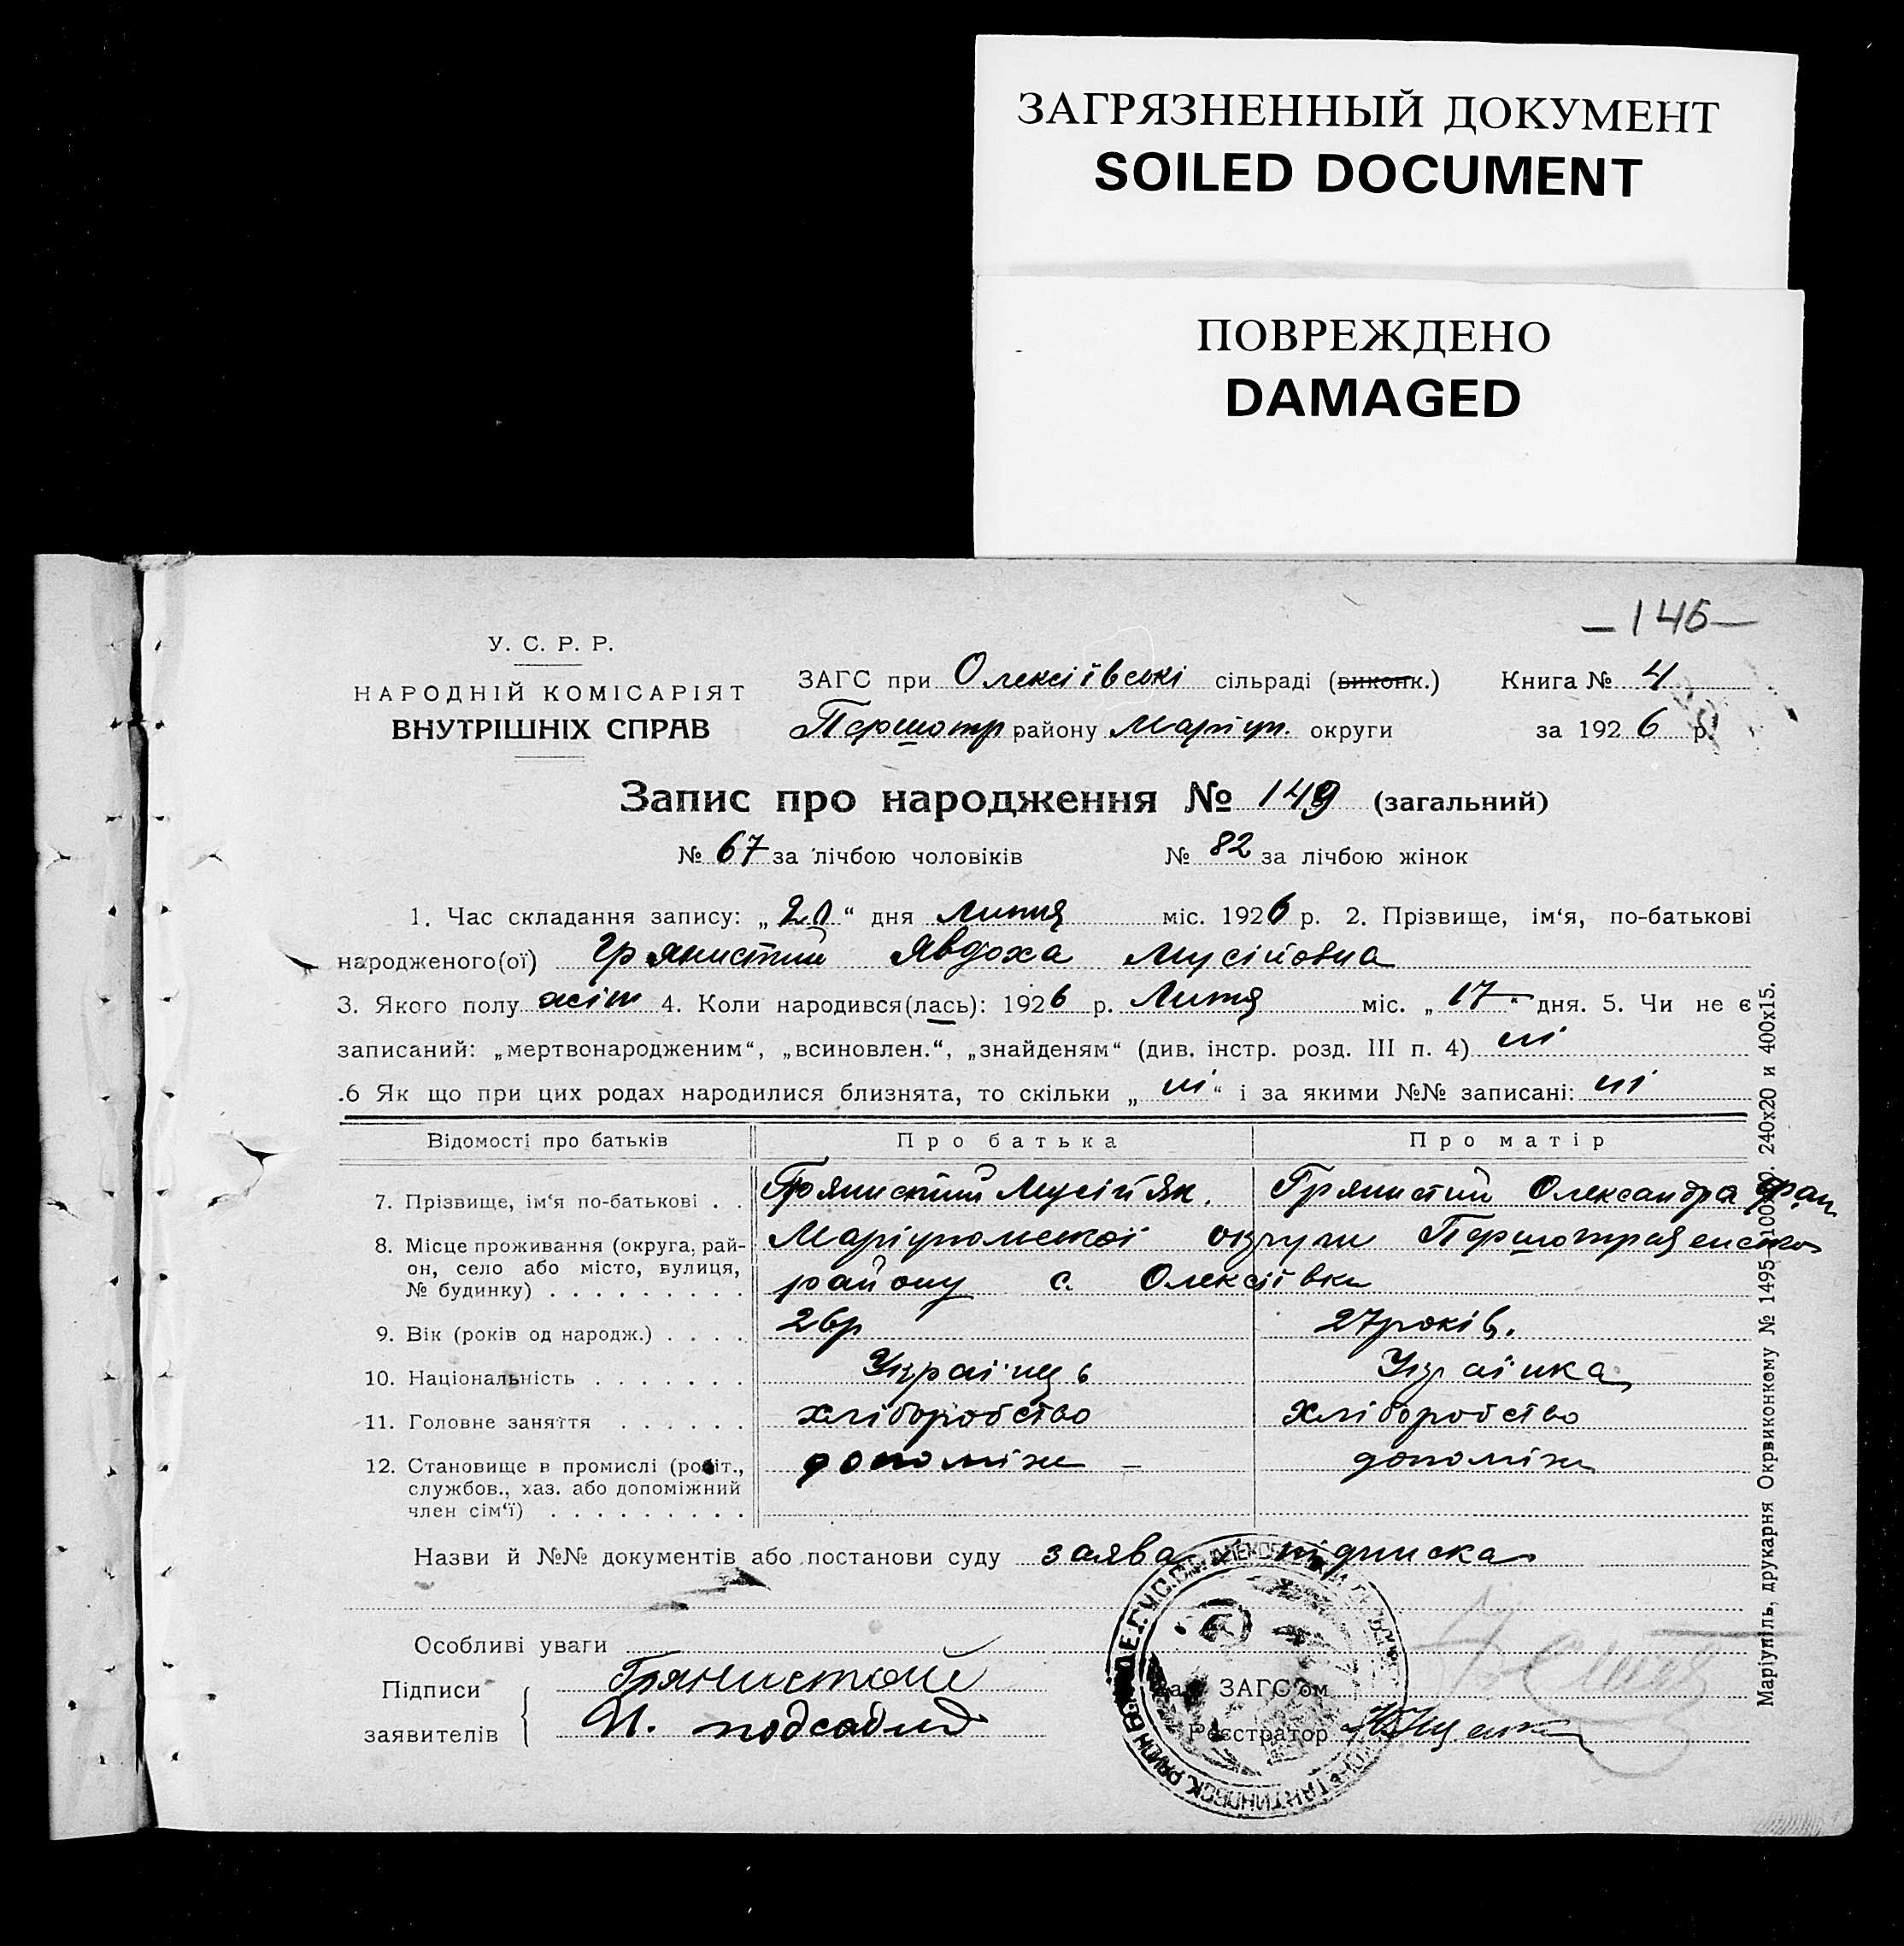 ЗАГРЯЗНЕННЫЙ ДОКУМЕНТ
SOILED DOCUMENT
ПОВРЕЖДЕНО
DAMAGED
—146—
У. С. Р. Р.
НАРОДНІЙ КОМІСАРІЯТ
ВНУТРІШНІХ СПРАВ
ЗАГС при Олексіївські сільраді (виконк.) Книга № 4
Першотр району Маріуп. округи за 1926 р.
Запис про народження № 149 (загальний)
№ 67 за лічбою чоловіків № 82 за лічбою жінок
1. Час складання запису: „20“ дня Липня міс. 1926 р. 2. Прізвище, ім‘я, по-батькові
народженого(ої) Грянистий Явдоха Мусійовна
3. Якого полу жін 4. Коли народився(лась): 1926 р. Липня міс. „17“ дня. 5. Чи не є
записаний: „мертвонародженим“, „всиновлен.“, „знайденям“ (див. інстр. розд. III п. 4) ні
.6 Як що при цих родах народилися близнята, то скільки „ні“ і за якими №№ записані: ні
Відомості про батьків Про батька Про матір
7. Прізвище, ім‘я по-батькові . . Грянистий Мусій Як. Грянистий Олександра
8. Місце проживання (округа, рай-
он, село або місто, вулиця,
№ будинку) . . . . . . . . .
Маріупольської округи Першотравенсько
району с. Олексіївки
9. Вік (років од народж.) . . . . 26р 27років.
10. Національність . . . . . . . Українець Українка
11. Головне заняття . . . . . . хліборобство хліборобство
12. Становище в промислі (робіт., допоміжн – допоміжн
службов., хаз. або допоміжний
член сім‘ї) . . . . . . . . .
Назви й №№ документів або постанови суду заява підписка
Особливі уваги
Підписи
заявителів
Грянистой
И. подсобляд
Зав. ЗАГС‘ом
Реєстратор
Маріупіль, друкарня Окрвиконкому № 1495 240x20 и 400x15.